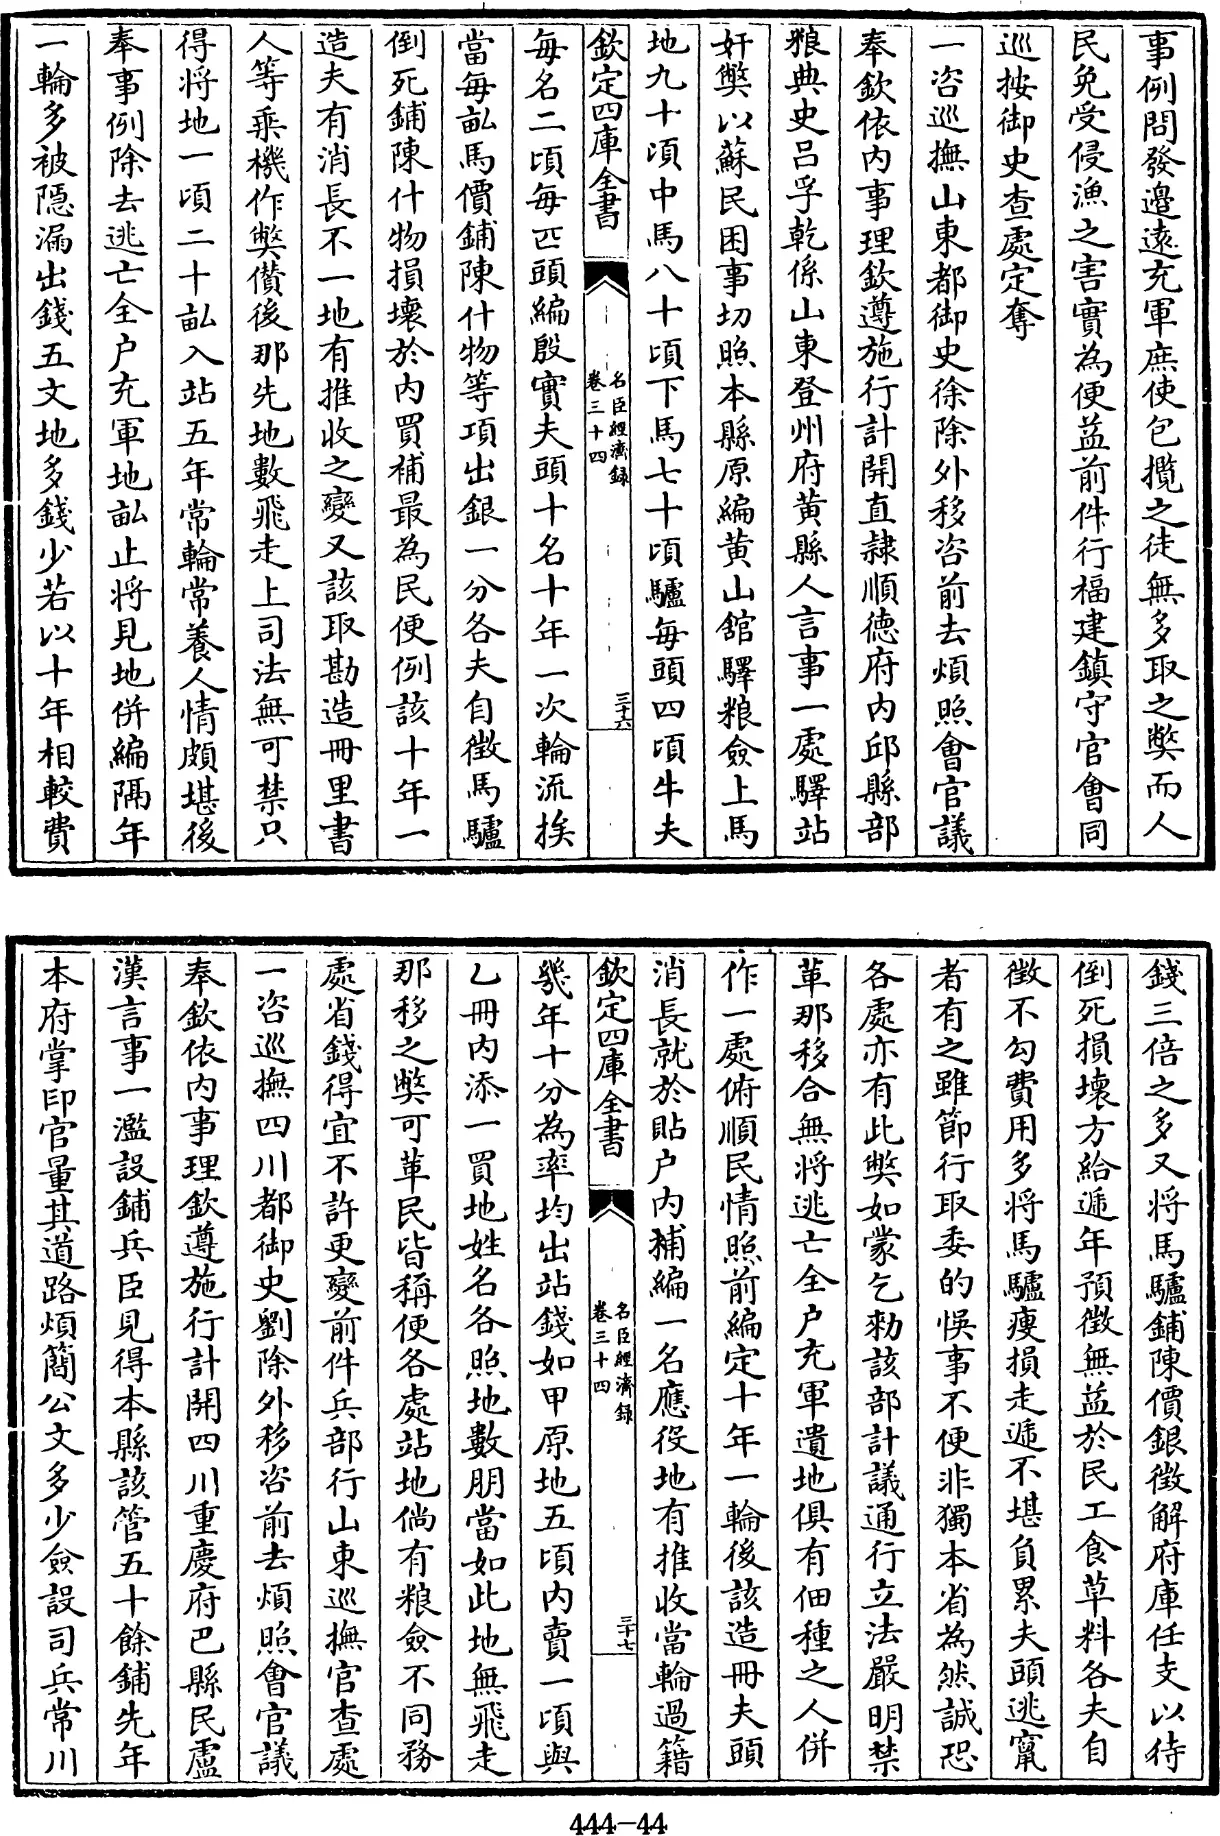 事例問發邉遠充軍庶使包攬之徒無多取之弊而人
民免受侵漁之害實為便益前件行福建鎮守官會同
巡按御史查處定奪
一咨巡撫山東都御史徐除外移咨前去煩照會官議
奉欽依内事理欽遵施行計開直隸順德府内邱縣部
粮典史吕孚乾係山東登州府黄縣人言事一處驛站
奸弊以蘇民困事切照本縣原編黄山舘驛粮僉上馬
地九十頃中馬八十頃下馬七十頃驢每頭四頃牛夫
欽定四庫全書
名臣經濟録
卷三十四
三十六
每名二頃每匹頭編殷實夫頭十名十年一次輪流挨
當每畝馬價鋪陳什物等項出銀一分各夫自徵馬驢
倒死鋪陳什物損壞於内買補最為民便例該十年一
造夫有消長不一地有推收之變又該取勘造冊里書
人等乗機作弊儧後那先地數飛走上司法無可禁只
得將地一頃二十畝入站五年常輪常養人情頗堪後
奉事例除去逃亡全户充軍地畝止將見地併編隔年
一輪多被隠漏出錢五文地多錢少若以十年相較費
錢三倍之多又將馬驢鋪陳價銀徵解府庫任支以待
倒死損壞方給遞年預徵無益於民工食草料各夫自
徵不勾費用多將馬驢瘦損走遞不堪負累夫頭逃竄
者有之雖節行取委的悞事不便非獨本省為然誠恐
各處亦有此弊如蒙乞勑該部計議通行立法嚴明禁
革那移合無將逃亡全户充軍遺地俱有佃種之人併
作一處俯順民情照前編定十年一輪後該造冊夫頭
消長就於貼户内補編一名應役地有推收當輪過籍
欽定四庫全書
名臣經濟録
卷三十四
三十七
幾年十分為率均出站錢如甲原地五頃内賣一頃與
乙冊内添一買地姓名各照地數朋當如此地無飛走
那移之弊可革民皆稱便各處站地倘有粮僉不同務
處省錢得宜不許更變前件兵部行山東巡撫官查處
一咨巡撫四川都御史劉除外移咨前去煩照會官議
奉欽依内事理欽遵施行計開四川重慶府巴縣民盧
漢言事一濫設鋪兵臣見得本縣該管五十餘鋪先年
本府掌印官量其道路煩簡公文多少僉設司兵常川
444-44